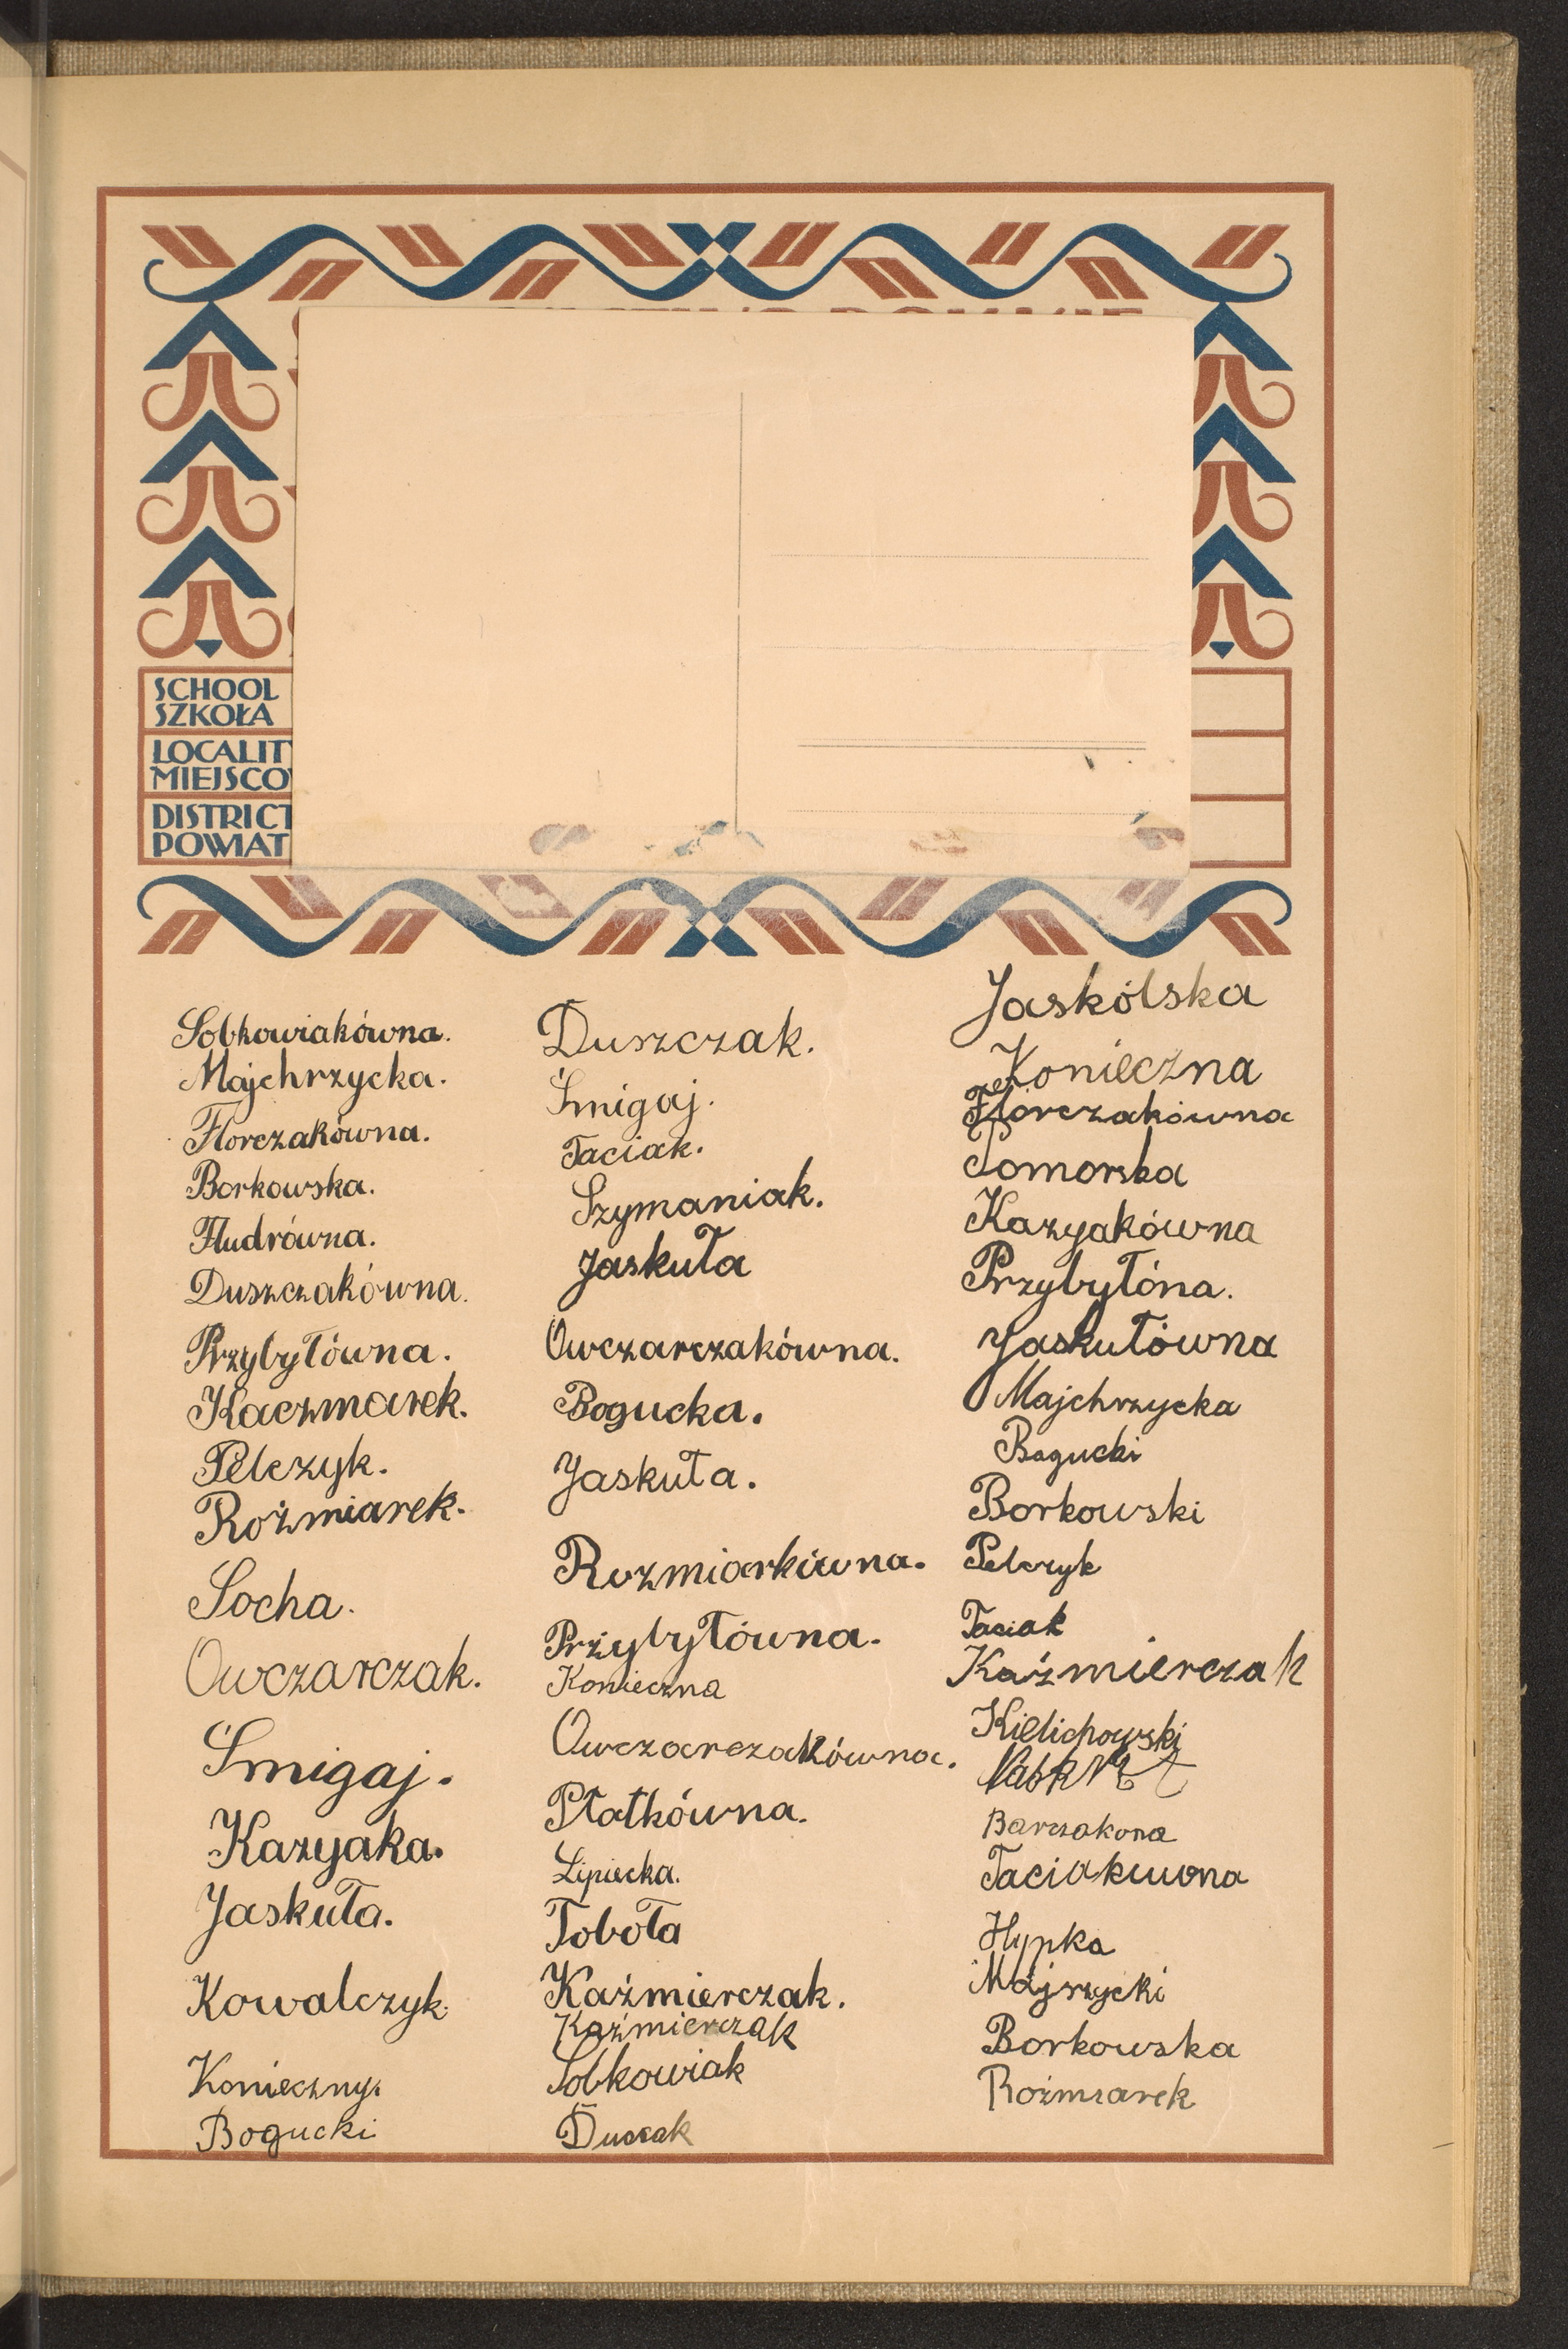 SCHOOL
SZKOŁA
LOCALIT
MIEJSCO
DISTRICT
POWIAT
Sobkowiakówna.
Majchrzycka.
Florczakówna.
Borkowska.
Fludrówna.
Duszczakówna.
Przybyłówna.
Kaczmarek.
Pelczyk.
Rożmiarek.
Socha.
Owczarczak.
Śmigaj.
Kazyaka.
Jaskuła.
Kowalczyk.
Konieczny.
Bogucki
Duszczak.
Śmigaj.
Taciak.
Szymaniak.
Jaskuła
Owczarczakówna.
Bogucka.
Jaskuła.
Rozmiarkówna.
Przybyłówna.
Konieczna
Owczarczakówna.
Płatkówna.
Lipiecka.
Toboła
Kaźmierczak.
Kaźmierczak
Sobkowiak
Duszak
Jaskólska
Konieczna
Flórczakówna
Pomorska
Kazyakówna
Przybyłóna.
Jaskułówna
Majchrzycka
Bogucki
Borkowski
Pelczyk
Taciak
Kaźmierczak
Kielichowski
Barczakona
Taciakuwna
Hypka
Majrzycki
Borkowska
Rożmiarek